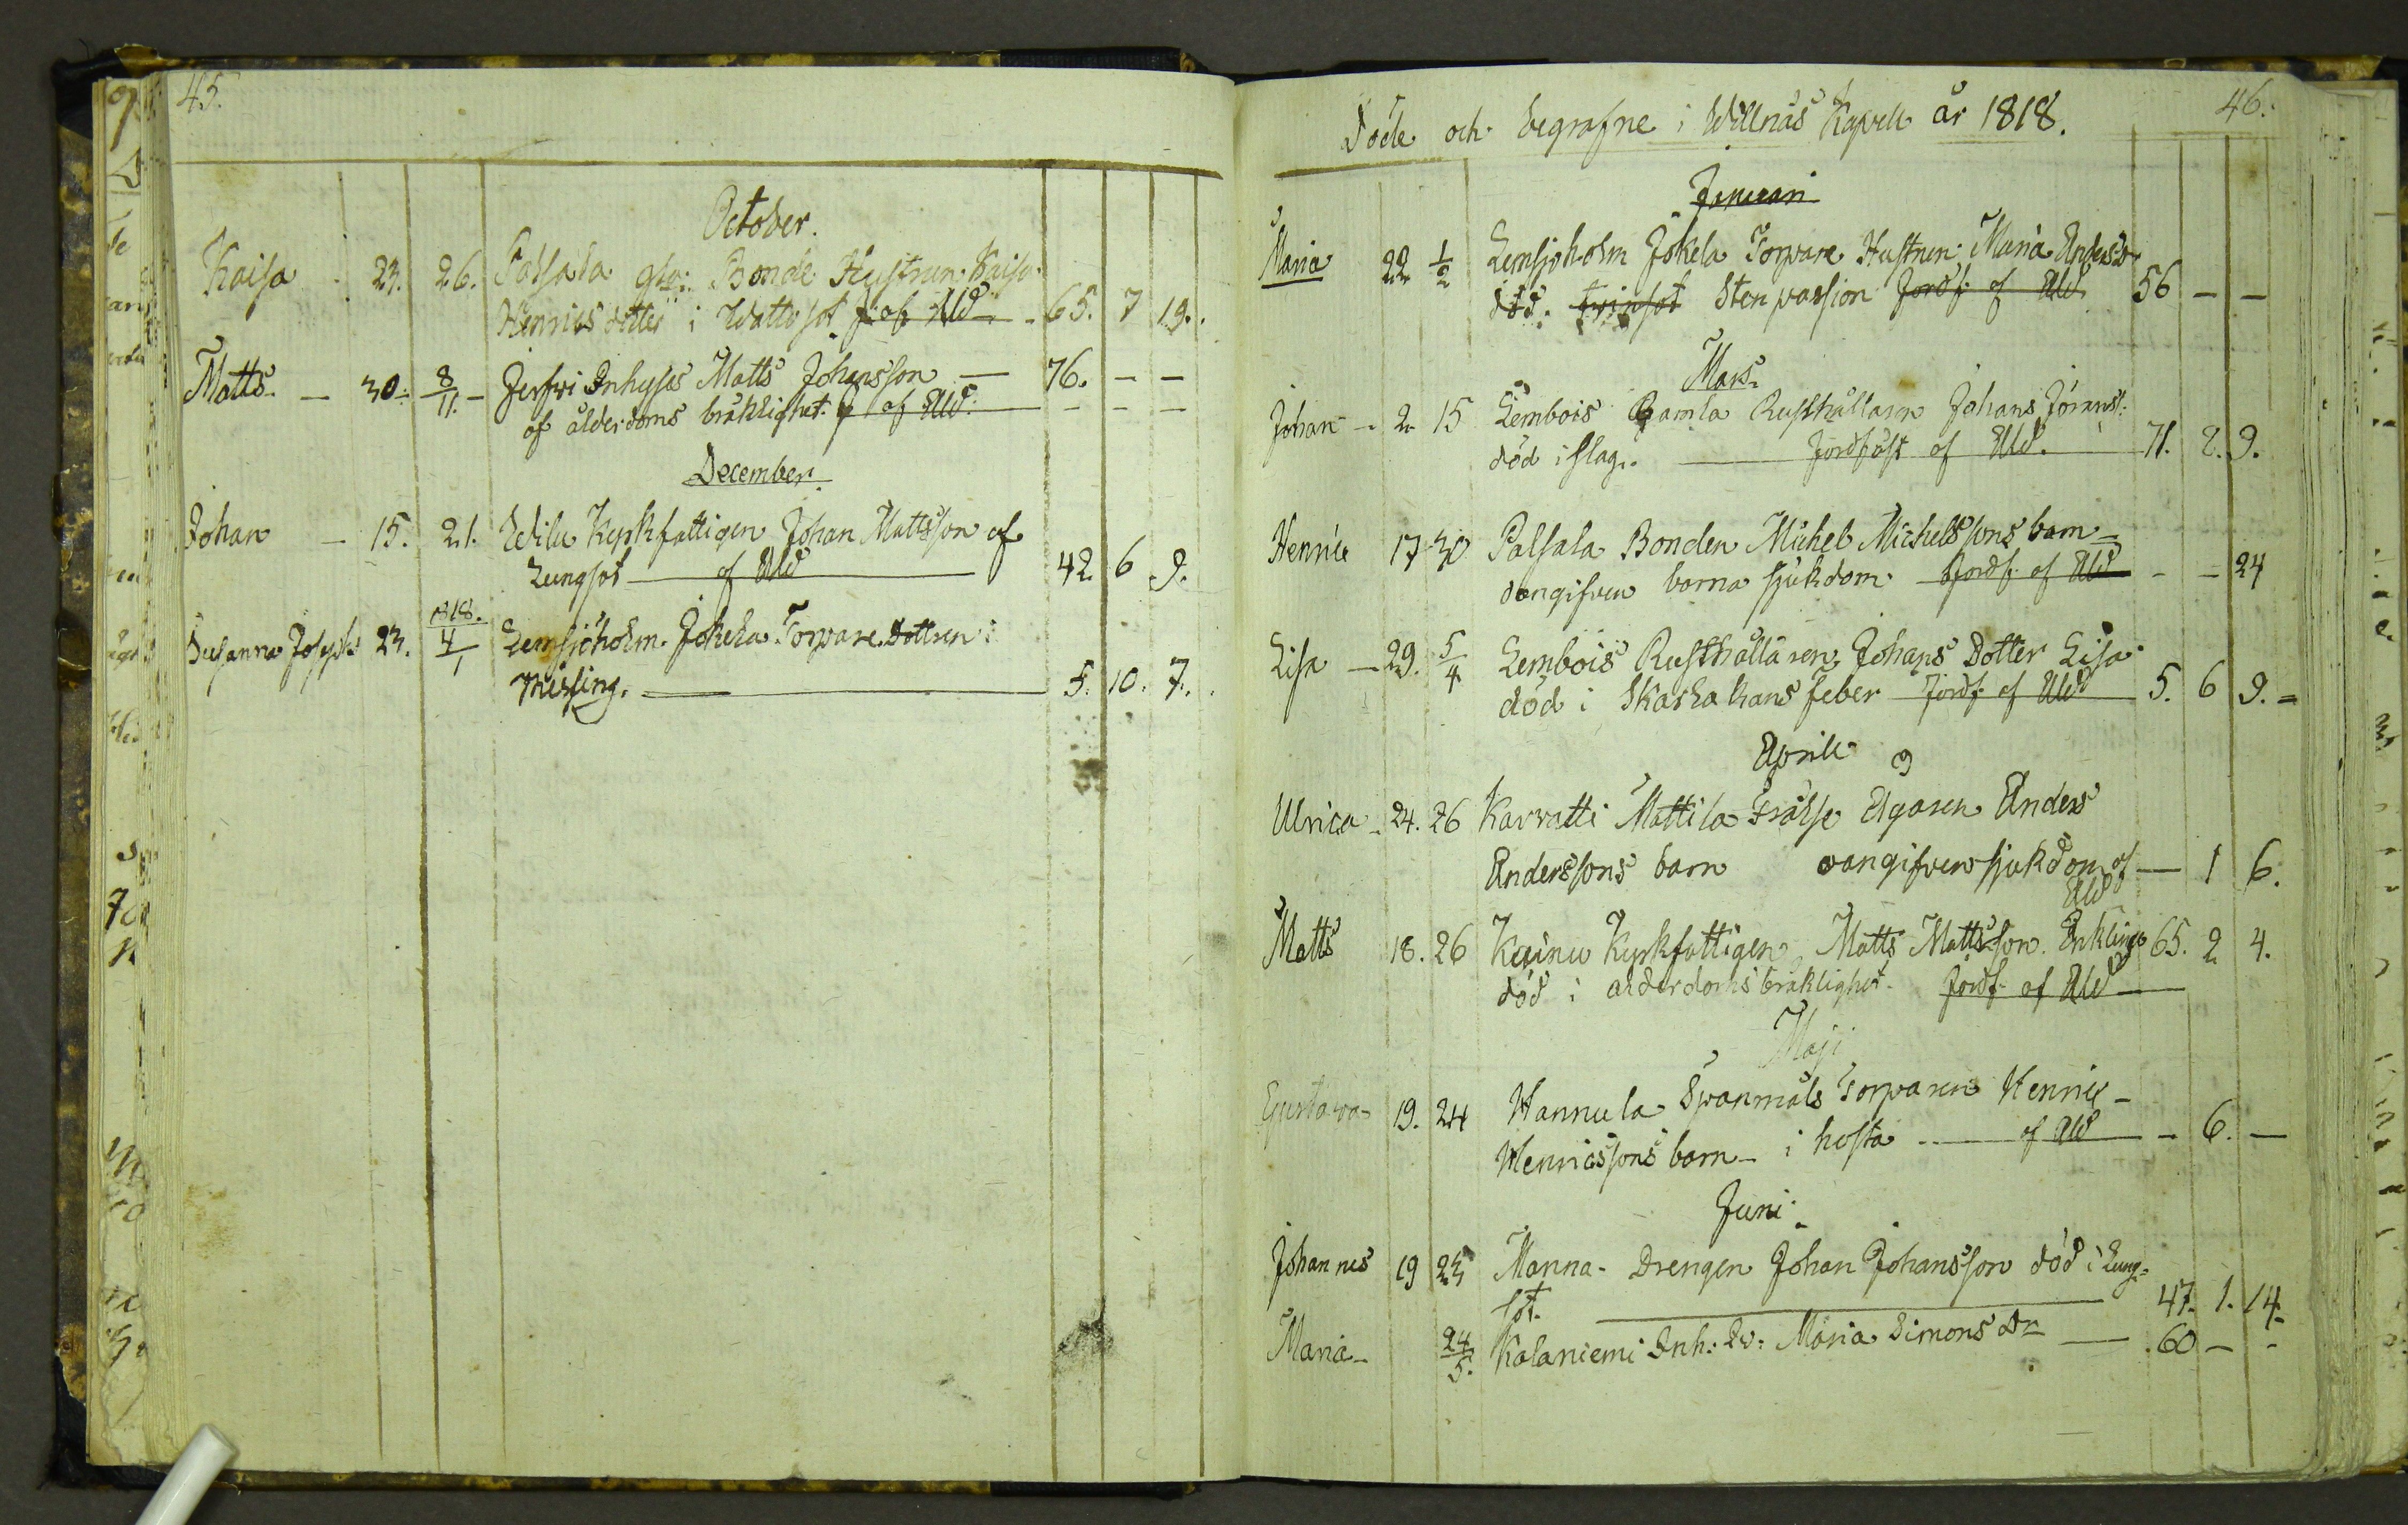 45.
October.
Kaisa 23. 26. Palsala gla: Bonde Hustrun Kaisa
Henricsdotter i Wattusot J. af Uld 65. 7 19.
Matts - 30. 8/11. - Jerfvi Inhyses Matts Johansson — 76. - -
af ålderdoms bräklighet. af Uld. - - -
December.
Johan - 15. 21. Wilu Kyrkfattigen Johan Mattsson af
Lungsot af Uld 42. 6 9.
1818.
Susanna Josephs 23. 4/1 Lemsjöholm Jokela Torpare Dottren i
Messling. 5. 10. 7.
46.
Döde och begrafne i Willnäs Kapell år 1818.
Januari
Maria 22 1/2 Lemsjoholm Jokela Torpare Hustrun Maria Andersd.
död. tvinsot Stenpassion Jordf. af Uld 56 - -
Mars.
Johan - 2. 15 Lembois Gamla Rusthållaren Johans
död i slag. Jordfäst af Uld. 71. 2. 9.
Henric 17 30 Palsala Bonden Michel Michelssons barn
oangifven barna sjukdom. Jordf. af Uld - - 24
Lisa - 29. 5/4 Lembois Rusthållaren Johans Dotter Lisa
död i Skarlakans feber Jordf. af Uld 5. 6 9. =
Aprill
Ulrica - 24. 26 Karvatti Mattila Frälse Ägaren Anders
Anderssons barn oangifven sjukdom af — 1 6.
Uld
Matts 18. 26 Kainu Kyrkfattigen Matts Mattsson Enkling 65. 2 4.
död i ålderdoms bräklighet. Jordf. af Uld
Maji
Gustava - 19. 24 Hannula Spanmåls Torparen Henric -
Henricssons barn - i hosta af Uld - 6. —
Juni.
Johannes 19 23 Manna - Drengen Johan Johansson död i Lung=
sot. 47. 1. 14.
Maria - 24/5. Kalaniemi Inh: Maria Simons Dr — 60 - -